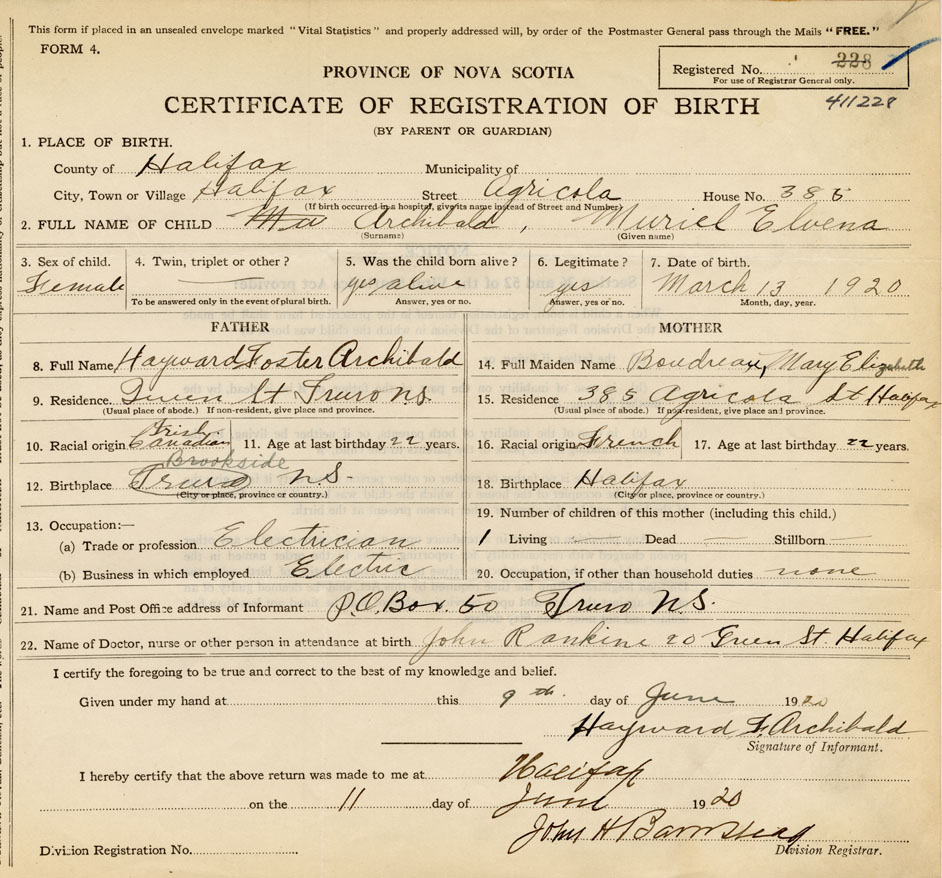 This form if placed in an unsealed envelope marked "Vital Statistics" and properly addressed will, by order of the Postmaster General pass through the Mails "FREE."
FORM 4.
Registered No. 228
For use of Registrar General only.
411228
PROVINCE OF NOVA SCOTIA
CERTIFICATE OF REGISTRATION OF BIRTH
(BY PARENT OR GUARDIAN)
1. PLACE OF BIRTH.
County of Halifax Municipality of
City, Town or Village Halifax Street Agricola House No. 385
(If birth occurred in a hospital, give its name instead of Street and Number)
2. FULL NAME OF CHILD Archibald, Muriel Elvena
(Surname) (Given name)
3. Sex of child. 4. Twin, triplet or other? 5. Was the child born alive? 6. Legitimate? 7. Date of birth.
Female yes alive yes March 13 1920
To be answered only in the event of plural birth. Answer, yes or no. Answer, yes or no. Month, day, year.
FATHER
8. Full Name Hayward Foster Archibald
9. Residence. Queen St Truro N.S.
(Usual place of abode.) If non-resident, give place and province.
10. Racial origin Irish Canadian 11. Age at last birthday 22 years.
Brookside
12. Birthplace Truro N.S.
(City or place, province or country.)
13. Occupation:—
(a) Trade or profession Electrician
(b) Business in which employed Electric
MOTHER
14. Full Maiden Name Boudreau, Mary Elizabeth
15. Residence 385 Agricola St Halifax
(Usual place of abode.) If non-resident, give place and province.
16. Racial origin French 17. Age at last birthday 22 years.
18. Birthplace Halifax
(City or place, province or country.)
19. Number of children of this mother (including this child.)
1 Living Dead Stillborn
20. Occupation, if other than household duties none
21. Name and Post Office address of Informant P.O. Box 50 Truro N.S.
22. Name of Doctor, nurse or other person in attendance at birth John Rankine 20 Green St Halifax
I certify the foregoing to be true and correct to the best of my knowledge and belief.
Given under my hand at this 9th day of June 1920
Hayward F. Archibald
Signature of Informant.
I hereby certify that the above return was made to me at Halifax
on the 11 day of June 1920
John H Barnstead
Division Registration No. Division Registrar.